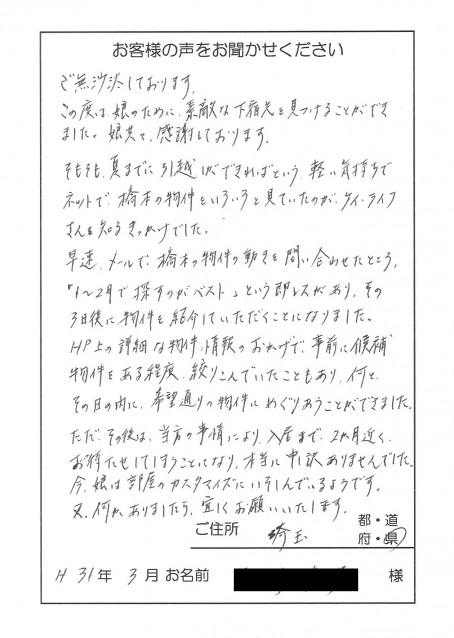 お客様の声をお聞かせください
ご無沙汰しております。
この度は、娘のために、素敵な下宿先を見つけることができ
ました。娘共々、感謝しております。
そもそも、夏までに引越しができればという、軽い気持ちで
ネットで、橋本の物件をいろいろと見ていたのが、ケイ・ライフ
さんを知るきっかけでした。
早速、メールで、橋本の物件の動きを問い合わせたところ、
「1～2月で探すのがベスト」という即レスがあり、その
3日後に物件を紹介していただくことになりました。
HP上の詳細な物件情報のおかげで、事前に候補
物件をある程度、絞りこんでいたこともあり、何と、
その日の内に、希望通りの物件にめぐりあうことができました。
ただ、その後は、当方の事情により、入居まで、2か月近く、
お待たせしてしまうことになり、本当に申し訳ありませんでした。
今、娘は部屋のカスタマイズにいそしんでいるようです。
又、何かありましたら、宜しくお願いいたします。
ご住所 埼玉 都・道府・県
H 31年 3月 お名前 様